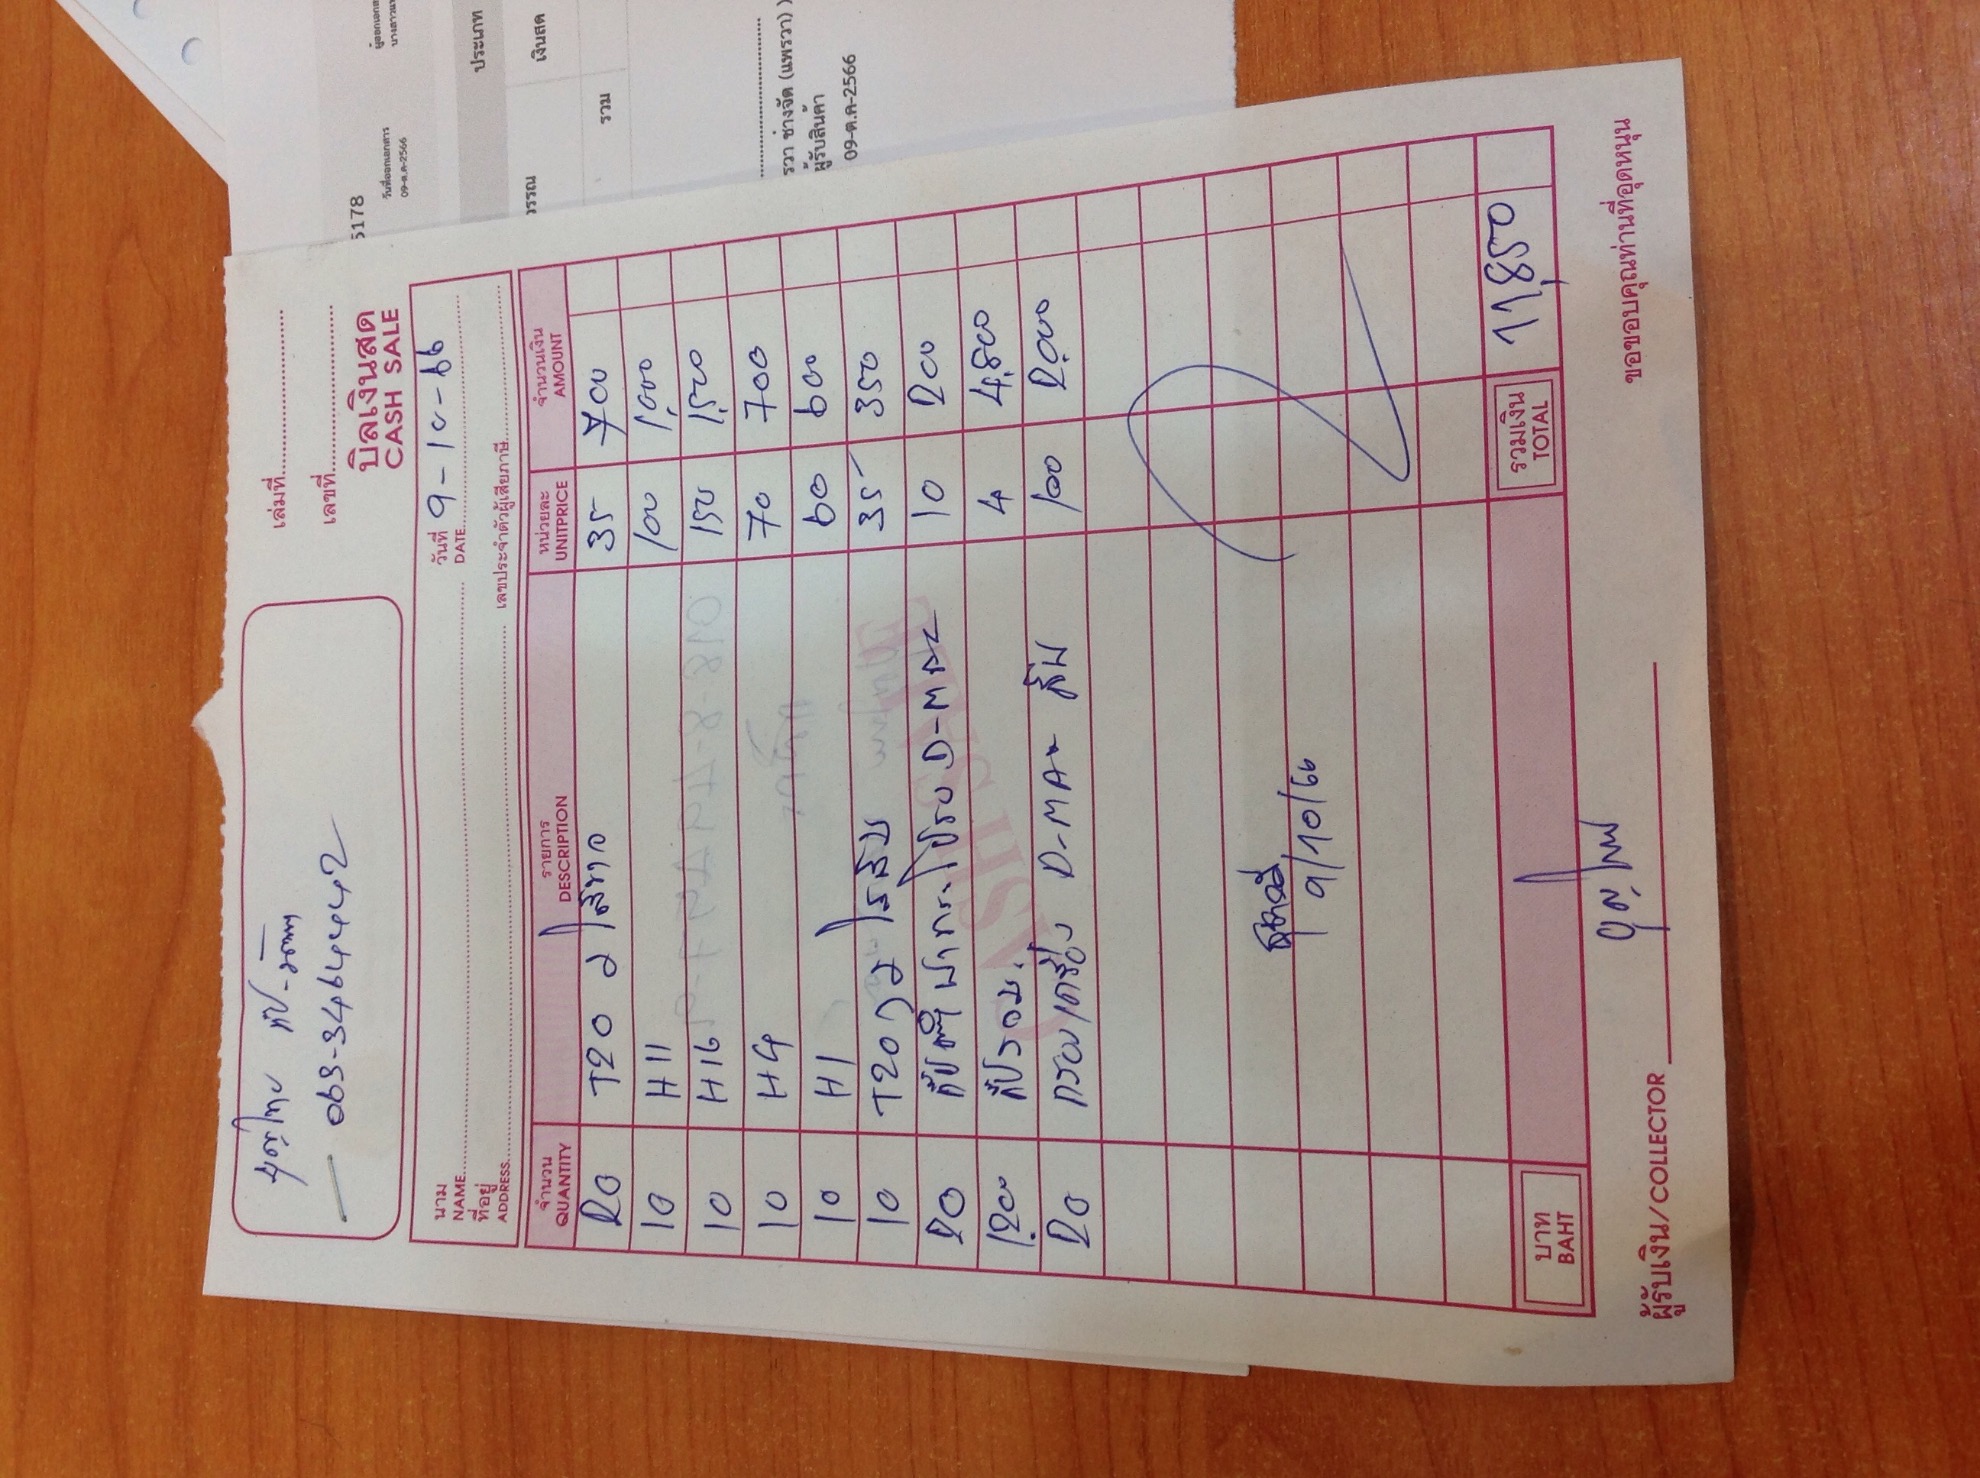 เล่มที่
เลขที่
บิลเงินสด
CASH SALE
063-3464442
นาม
NAME
วันที่ 9-10-66
DATE
ที่อยู่
ADDRESS
เลขประจำตัวผู้เสียภาษี
จำนวน รายการ หน่วยละ จำนวนเงิน
QUANTITY DESCRIPTION UNITPRICE AMOUNT
20 T20 2 ไส้ขาว 35 700
10 H11 100 1,000
10 H16 150 1,500
10 H4 70 700
10 H1 60 600
10 T20 ไส้ส้ม 35 350
20 กิ๊ป D-MAX 10 200
1,200 กิ๊ป 4 4,800
20 กรองเครื่อง D-MAX 100 2,000
9/10/66
บาท
BAHT
รวมเงิน
TOTAL
11,850
ผู้รับเงิน/COLLECTOR
ขอขอบคุณท่านที่อุดหนุน
5178
วันที่ออกเอกสาร
09-ต.ค-2566
ประเภท
วรรณ
เงินสด
รวม
รวา ช่างจัด (แพรวา) )
ผู้รับสินค้า
09-ต.ค-2566